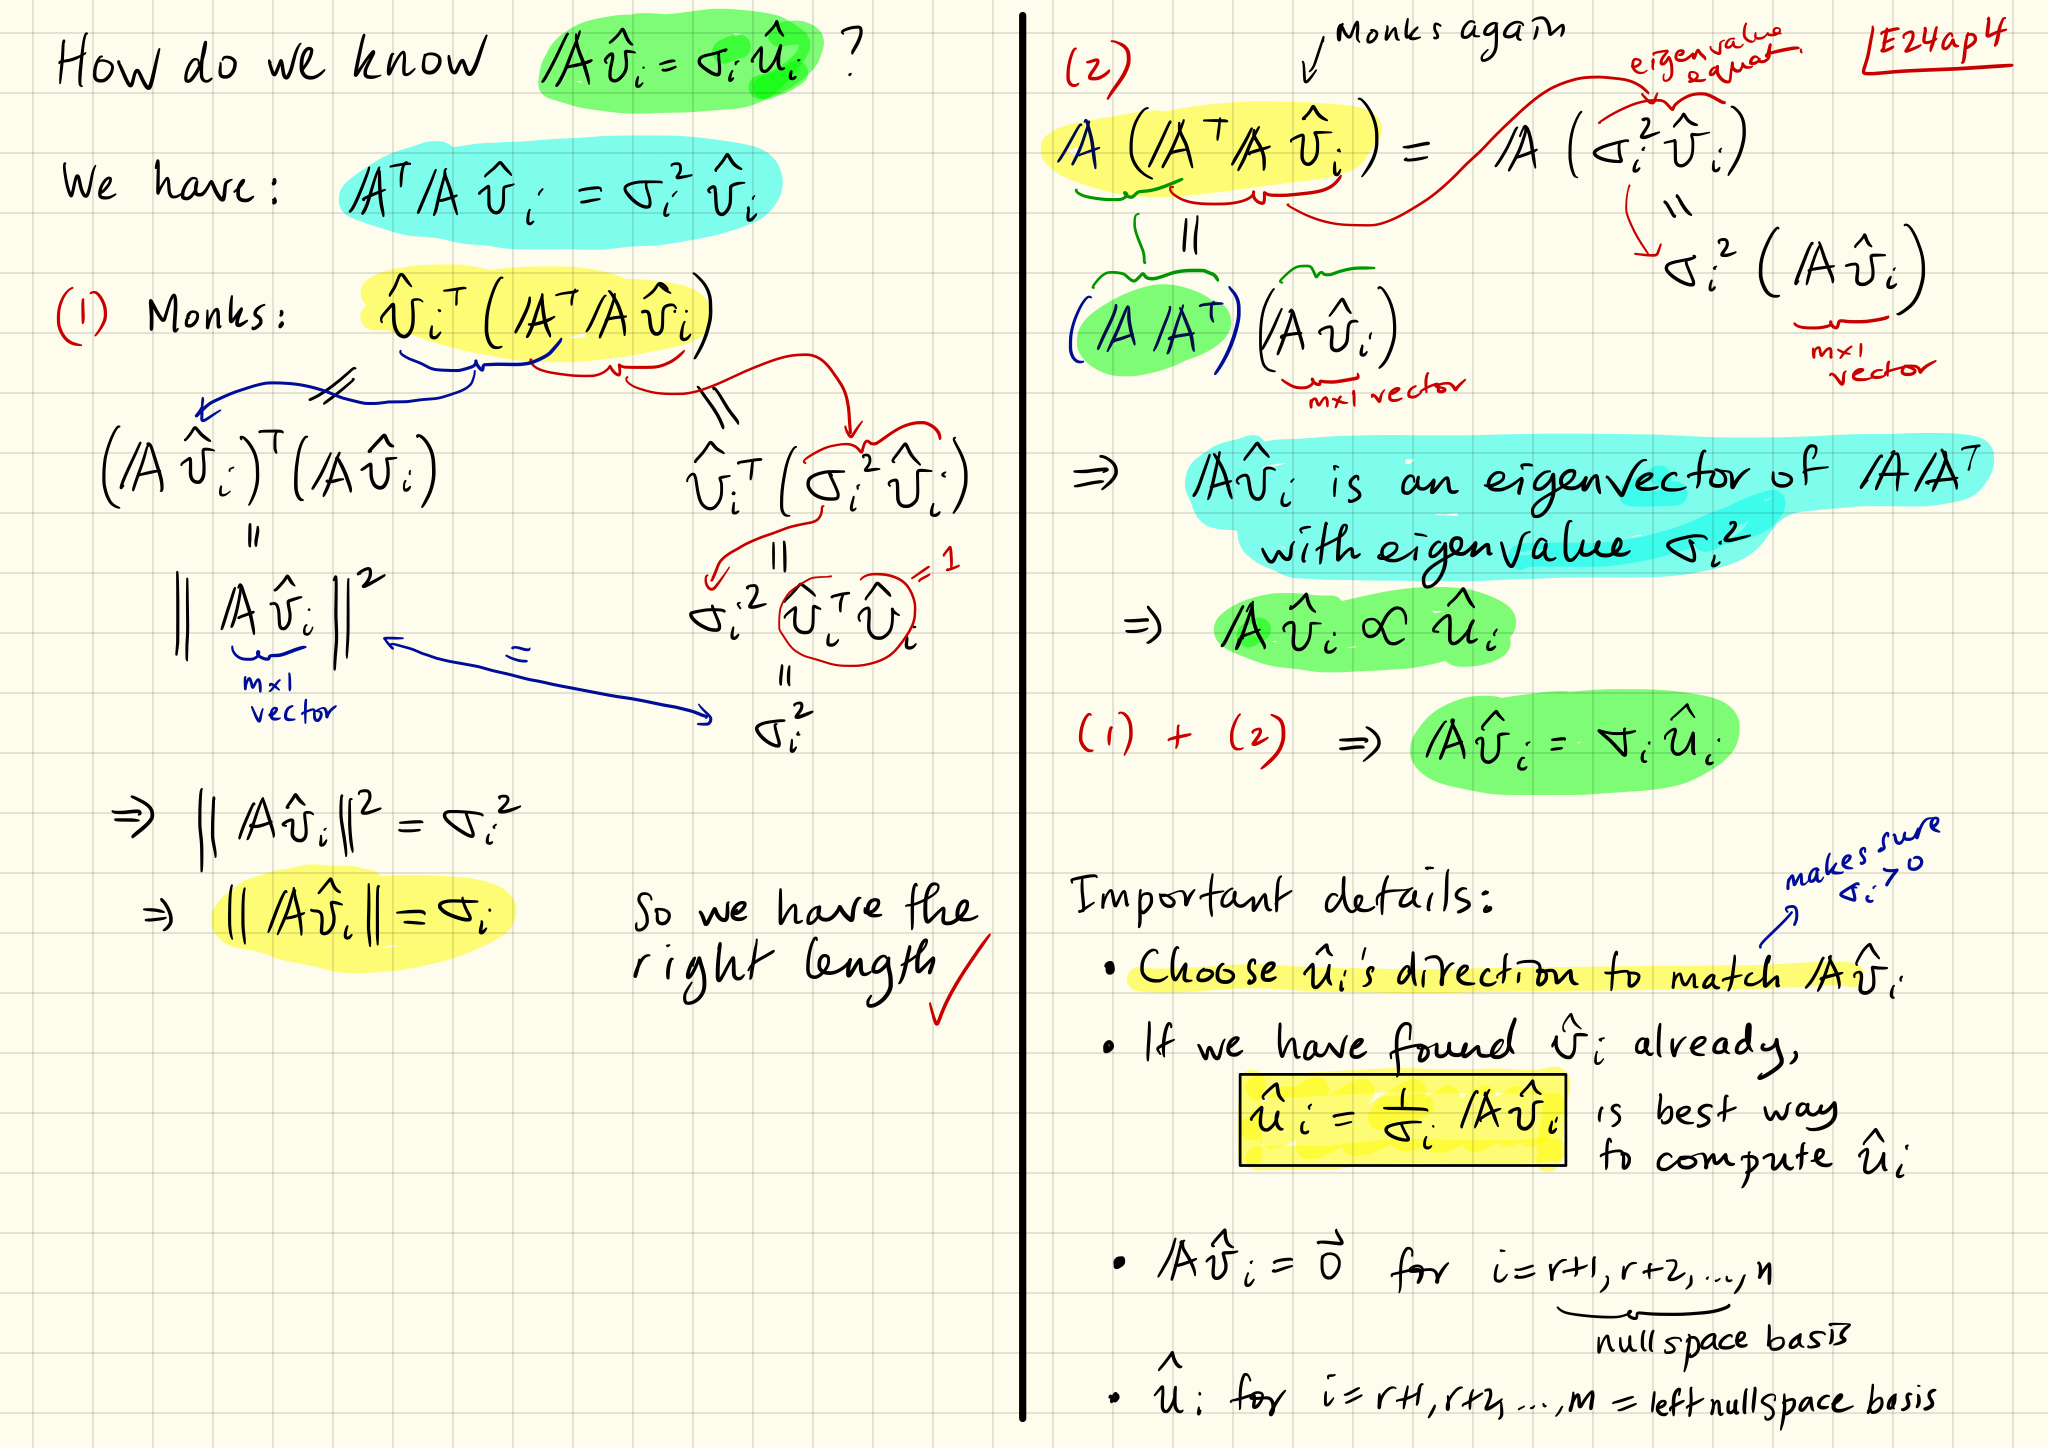 How do we know 𝔸v̂ᵢ = σᵢûᵢ ?
We have: 𝔸ᵀ𝔸 v̂ᵢ = σᵢ² v̂ᵢ
(1) Monks: v̂ᵢᵀ (𝔸ᵀ𝔸 v̂ᵢ)
= =
(𝔸v̂ᵢ)ᵀ(𝔸v̂ᵢ) v̂ᵢᵀ (σᵢ² v̂ᵢ)
= =
|| 𝔸v̂ᵢ ||² = σᵢ² v̂ᵢᵀ v̂ᵢ = 1
m×1
vector
=
σᵢ²
⇒ || 𝔸v̂ᵢ ||² = σᵢ²
⇒ || 𝔸v̂ᵢ || = σᵢ
So we have the
right length ✓
E24ap4
Monks again
eigenvalue
equat.
(2)
𝔸 (𝔸ᵀ𝔸 v̂ᵢ) = 𝔸 (σᵢ² v̂ᵢ)
= =
σᵢ² (𝔸v̂ᵢ)
m×1
vector
(𝔸𝔸ᵀ) (𝔸v̂ᵢ)
m×1 vector
⇒ 𝔸v̂ᵢ is an eigenvector of 𝔸𝔸ᵀ
with eigenvalue σᵢ²
⇒ 𝔸v̂ᵢ ∝ ûᵢ
(1) + (2) ⇒ 𝔸v̂ᵢ = σᵢûᵢ
makes sure
σᵢ > 0
Important details:
• Choose ûᵢ's direction to match 𝔸v̂ᵢ
• If we have found v̂ᵢ already,
ûᵢ = 1/σᵢ 𝔸v̂ᵢ is best way
to compute ûᵢ
• 𝔸v̂ᵢ = 0⃗ for i = r+1, r+2, ..., n
nullspace basis
• ûᵢ for i = r+1, r+2, ..., m = left nullspace basis